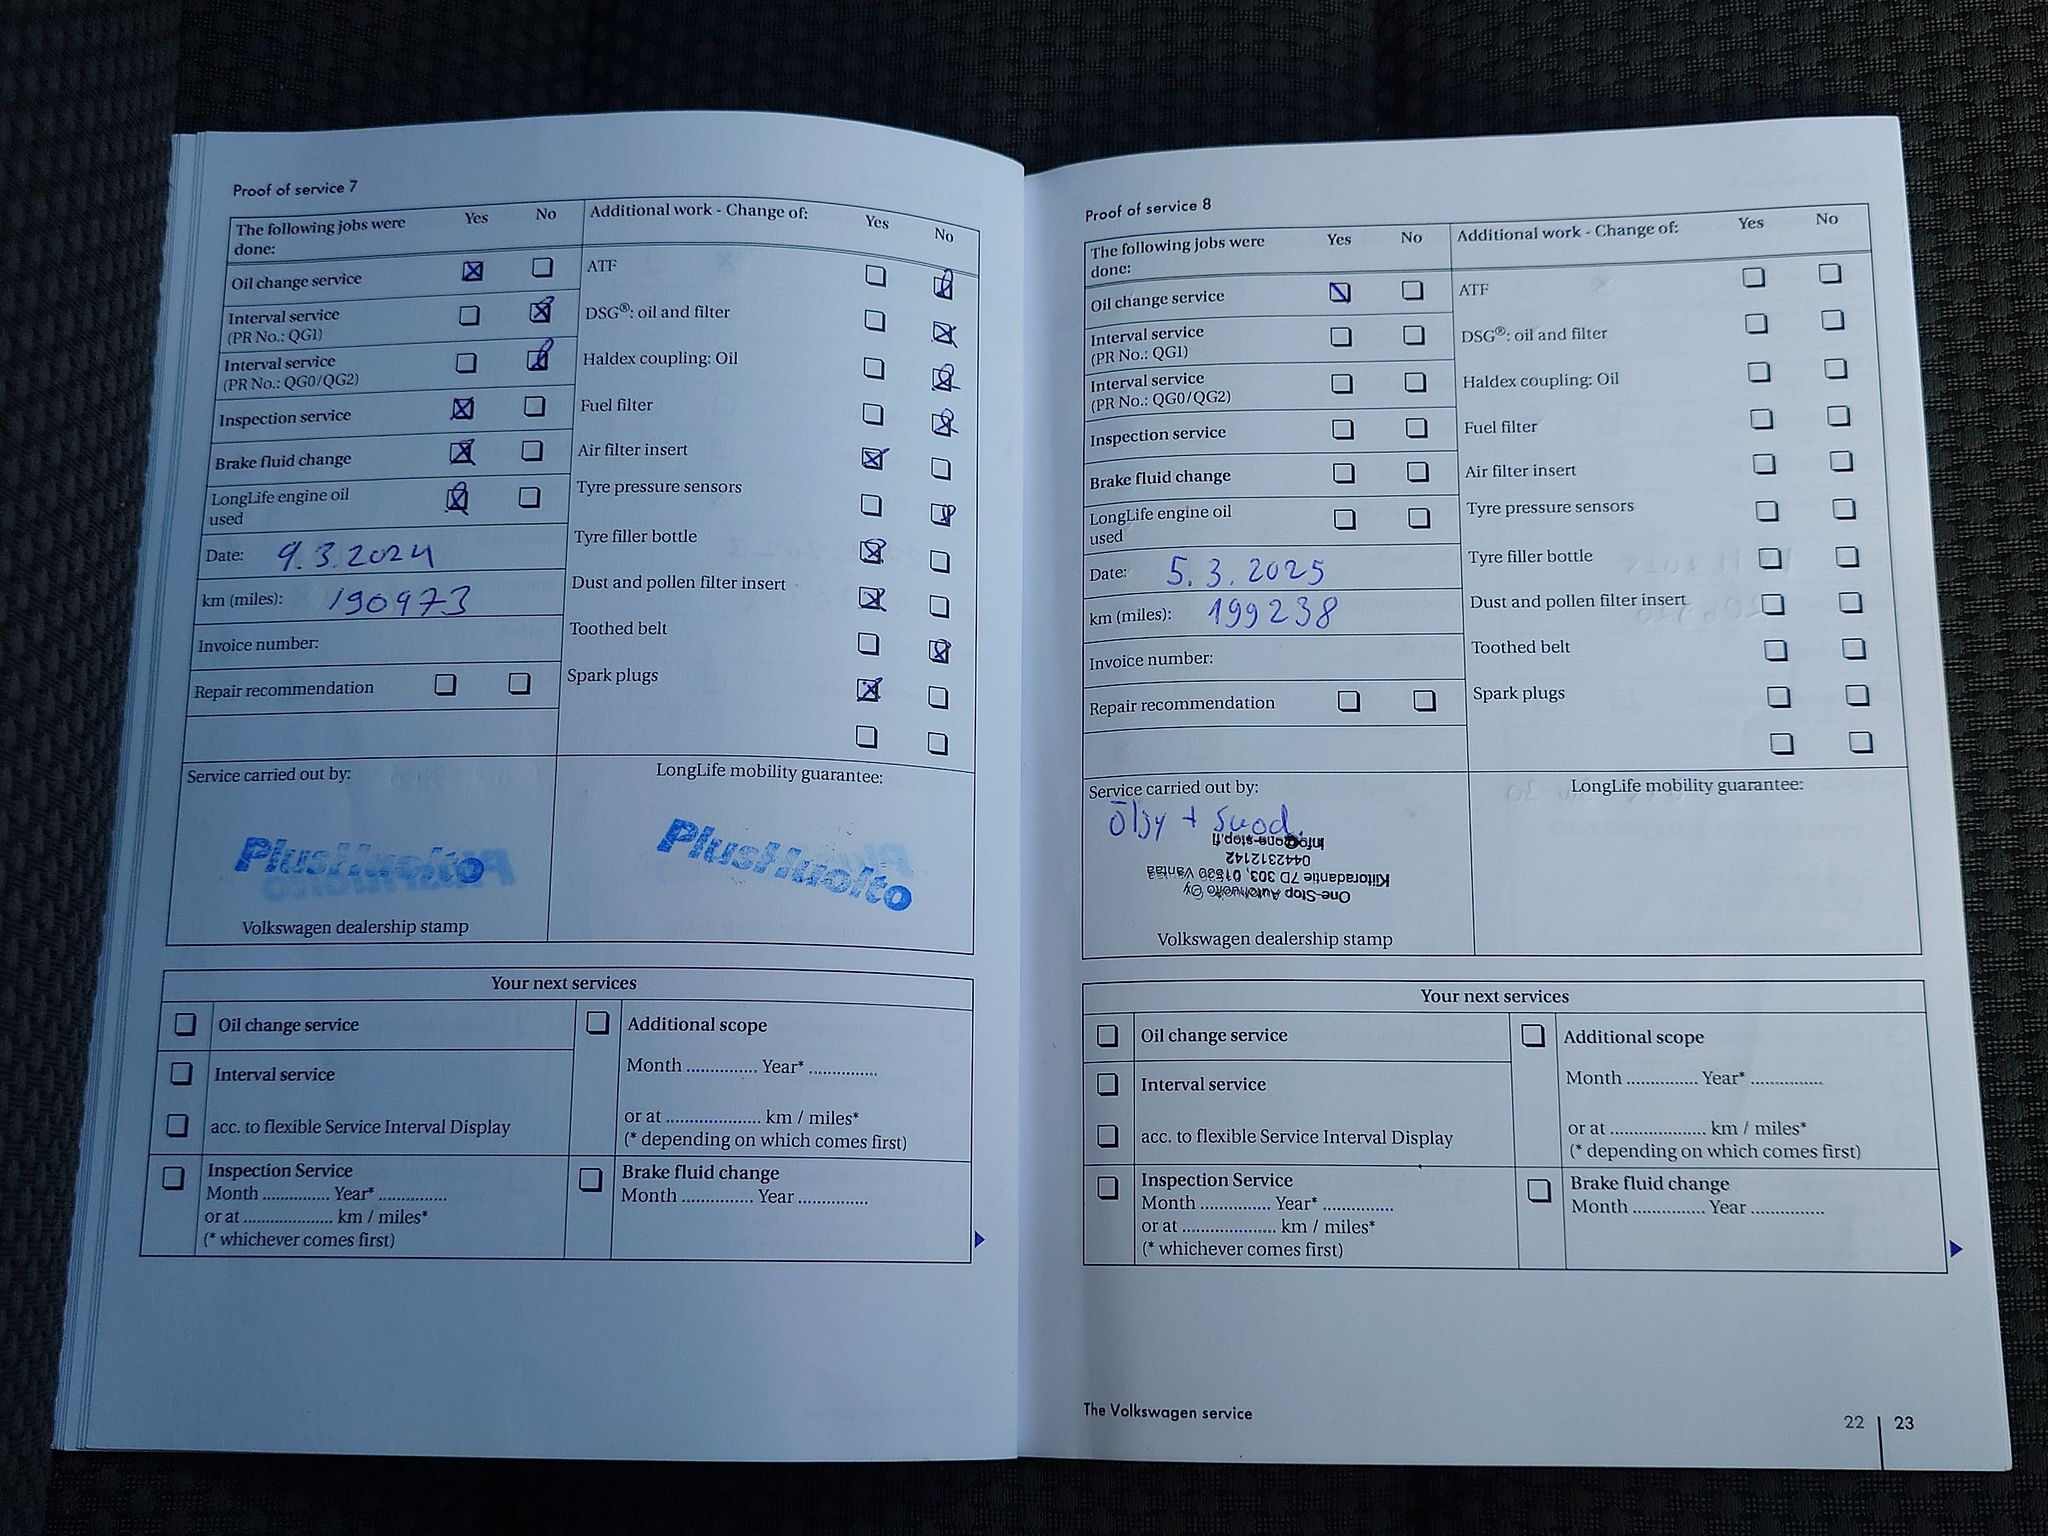 Proof of service 7
The following jobs were done: Yes No
Oil change service
Interval service
(PR No.: QG1)
Interval service
(PR No.: QG0/QG2)
Inspection service
Brake fluid change
LongLife engine oil
used
Date: 9.3.2024
km (miles): 190973
Invoice number:
Repair recommendation
Additional work - Change of: Yes No
ATF
DSG®: oil and filter
Haldex coupling: Oil
Fuel filter
Air filter insert
Tyre pressure sensors
Tyre filler bottle
Dust and pollen filter insert
Toothed belt
Spark plugs
Service carried out by:
PlusHuolto
Volkswagen dealership stamp
LongLife mobility guarantee:
PlusHuolto
Your next services
Oil change service
Interval service
acc. to flexible Service Interval Display
Inspection Service
Month .............. Year* ..............
or at ..................... km / miles*
(* whichever comes first)
Additional scope
Month ............... Year* ..............
or at ..................... km / miles*
(* depending on which comes first)
Brake fluid change
Month ............... Year ...............
Proof of service 8
The following jobs were done: Yes No
Oil change service
Interval service
(PR No.: QG1)
Interval service
(PR No.: QG0/QG2)
Inspection service
Brake fluid change
LongLife engine oil
used
Date: 5.3.2025
km (miles): 199238
Invoice number:
Repair recommendation
Additional work - Change of: Yes No
ATF
DSG®: oil and filter
Haldex coupling: Oil
Fuel filter
Air filter insert
Tyre pressure sensors
Tyre filler bottle
Dust and pollen filter insert
Toothed belt
Spark plugs
Service carried out by:
Öljy + Suod.
One-Stop Autohuolto Oy
Kiitoradantie 7D 303, 01530 Vantaa
0442312142
info@one-stop.fi
Volkswagen dealership stamp
LongLife mobility guarantee:
Your next services
Oil change service
Interval service
acc. to flexible Service Interval Display
Inspection Service
Month ............... Year* ...............
or at ..................... km / miles*
(* whichever comes first)
Additional scope
Month ............... Year* ...............
or at ..................... km / miles*
(* depending on which comes first)
Brake fluid change
Month ............... Year ...............
The Volkswagen service
22 23